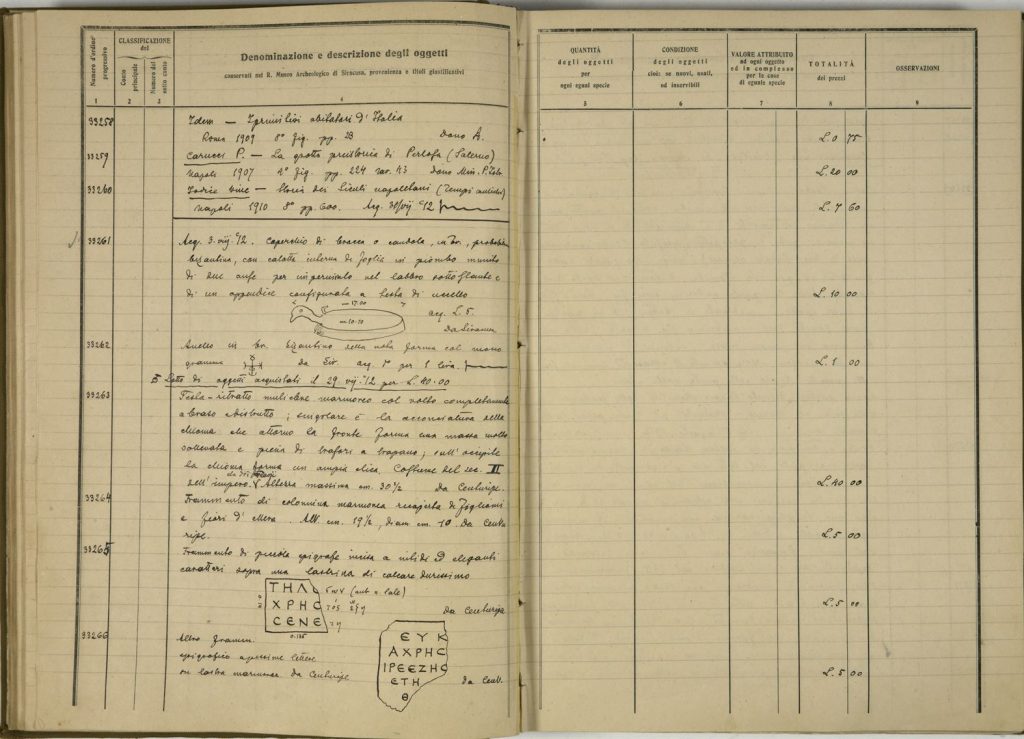 Numero d'ordine progressivo
CLASSIFICAZIONE del
Conto principale
Numero del sotto conto
Denominazione e descrizione degli oggetti
conservati nel R. Museo Archeologico di Siracusa, provenienza e titoli giustificativi
1 2 3 4
33258 Idem — I primitivi abitatori d'Italia
Roma 1909 8° fig. pp. 28 Dono A.
33259 Carucci P. — La grotta preistorica di Pertosa (Salerno)
Napoli 1907 4° fig. pp. 224 tav. 43 Dono Min. P. Istr.
33260 — Storia dei napoletani (Tempi antichi)
Napoli 1910 8° pp. 600. Acq. 30/vij °12
33261 Acq. 3. vij. °12. Coperchio di brocca o candola, in br., probabilm.
bizantino, con calotta interna di foglia in piombo munito
di due anse per impernialo nel labbro sottostante e
di un appendice configurata a testa di uccello
17.00
10.70 acq. L. 5.
Da Siracusa
33262 Anello in br. bizantino della nota forma col mono
gramma da Sir. acq. per 1 lira.
Lotto di oggetti acquistati il 29 vij. °12 per L. 40.00
33263 Testa-ritratto muliebre marmoreo col volto completamente
abraso distrutto; singolare è la acconciatura della
chioma che attorno la fronte forma una massa molto
sollevata e piena di trafori a trapano; sull'occipite
la chioma forma un ampia. Coffiure del sec. II
dell'impero. Altezza massima cm. 30½ Da Centuripe.
33264 Frammento di colonnina marmorea ricoperta di fogliami
e fiori d'. Alt. cm. 19½, diam cm. 10. Da Centu
ripe.
33265 Frammento di piccola epigrafe incisa a nitidi ed eleganti
caratteri sopra una lastrina di calcare durissimo
ΤΗΛ
ΧΡΗϹ
ϹΕΝΕ
0.135
Da Centuripe
33266 Altro framm.
epigrafico a pessime lettere
su lastra marmorea. Da Centuripe
ΕΥΚ
ΑΧΡΗϹ
ΙΡΕΕΖΗϹ
ΕΤΗ
Θ
da Cent.
QUANTITÀ degli oggetti per ogni egual specie
CONDIZIONE degli oggetti cioè: se nuovi, usati, od inservibili
VALORE ATTRIBUITO ad ogni oggetto od in complesso per le cose di eguale specie
TOTALITÀ dei prezzi
OSSERVAZIONI
5 6 7 8 9
L. 0 75
L. 20 00
L. 7 60
L. 10 00
L. 1 00
L. 40 00
L. 5 00
L. 5 00
L. 5 00